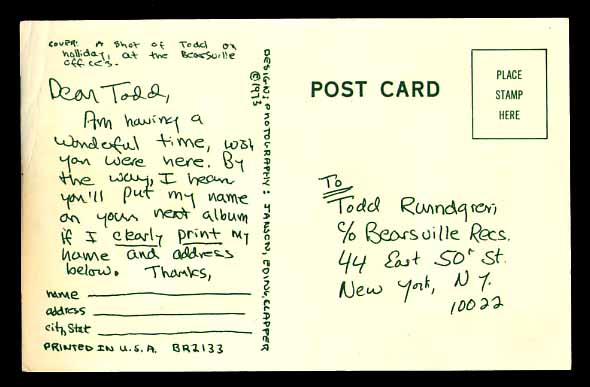 COVER: A Shot of Todd on
holliday, at the Bearsville
offices.
Dear Todd,
Am having a
wonderful time, wish
you were here. By
the way, I hear
you'll put my name
on your next album
if I clearly print my
name and address
below. Thanks,
name
address
city, stat
PRINTED IN U.S.A. BR2133
DESIGN; PHOTOGRAPHY: JANSEN, EDING, CLAPPER
©1973
POST CARD
PLACE
STAMP
HERE
To
Todd Rundgren,
c/o Bearsville Recs.
44 East 50th St.
New York, N.Y.
10022